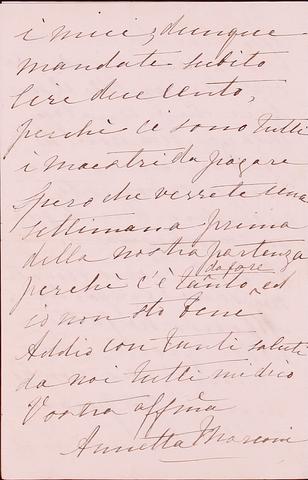 i miei, dunque
mandate subito
lire due cento,
perchè ci sono tutti
i maestri da pagare
spero che verrete una
settimana prima
della nostra partenza
perchè c'è tanto da fare ed
io non sto bene
Addio con tanti saluti
da noi tutti mi dico
Vostra affma
Annetta Marconi